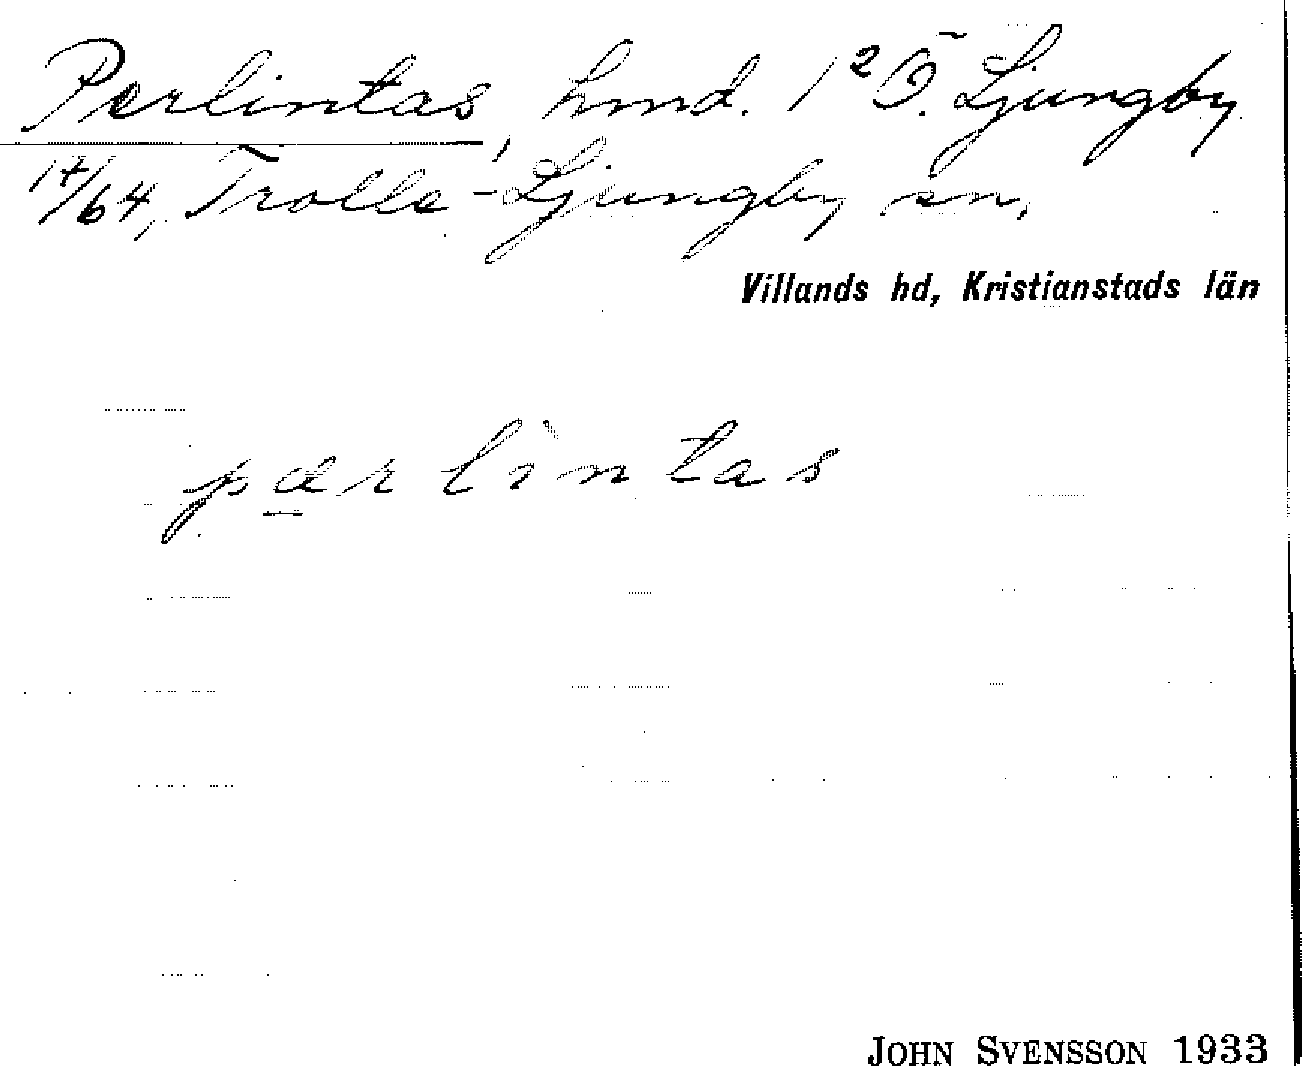 Perlintas, hmd. 1² Ö. Ljungby
17/64, Trolle-Ljungby sn,
Villands hd, Kristianstads län
pærlìntas
JOHN SVENSSON 1933